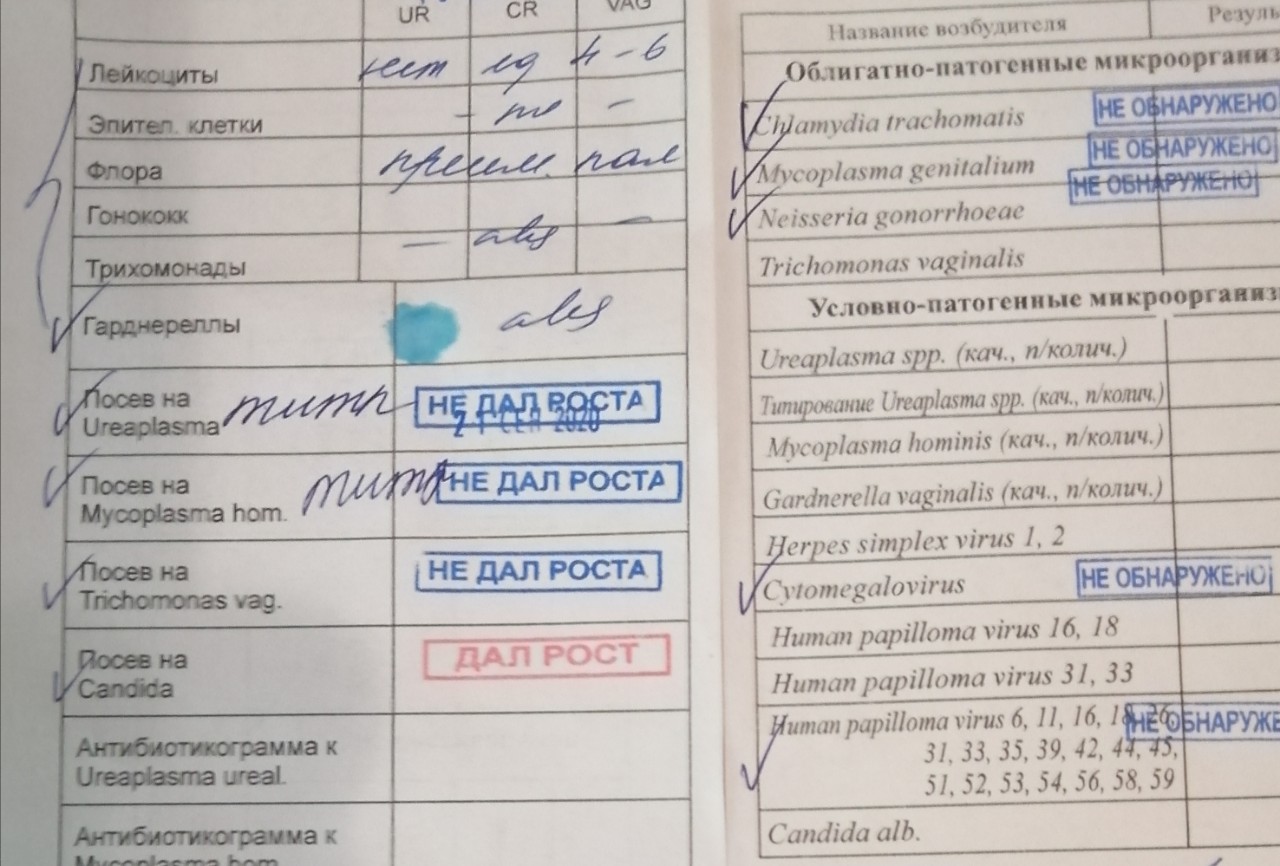 UR CR VAG
Лейкоциты нет ед 4-6
Эпител. клетки - -
Флора
Гонококк
- abs -
Трихомонады
Гарднереллы abs
Посев на
Ureaplasma титр НЕ ДАЛ РОСТА
21 СЕН 2020
Посев на
Mycoplasma hom. титр НЕ ДАЛ РОСТА
Посев на
Trichomonas vag. НЕ ДАЛ РОСТА
Посев на
Candida ДАЛ РОСТ
Антибиотикограмма к
Ureaplasma ureal.
Антибиотикограмма к
Mycoplasma hom
Название возбудителя Резуль
Облигатно-патогенные микроорганиз
Chlamydia trachomatis НЕ ОБНАРУЖЕНО
Mycoplasma genitalium НЕ ОБНАРУЖЕНО
Neisseria gonorrhoeae НЕ ОБНАРУЖЕНО
Trichomonas vaginalis
Условно-патогенные микроорганиз
Ureaplasma spp. (кач., п/колич.)
Типирование Ureaplasma spp. (кач., п/колич.)
Mycoplasma hominis (кач., п/колич.)
Gardnerella vaginalis (кач., п/колич.)
Herpes simplex virus 1, 2
Cytomegalovirus НЕ ОБНАРУЖЕНО
Human papilloma virus 16, 18
Human papilloma virus 31, 33
Human papilloma virus 6, 11, 16, 18, 26, НЕ ОБНАРУЖЕ
31, 33, 35, 39, 42, 44, 45,
51, 52, 53, 54, 56, 58, 59
Candida alb.